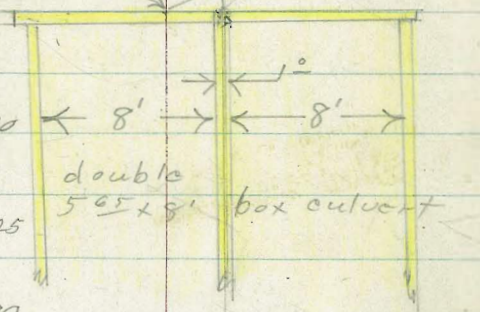 1º
8' 8'
double
5 65 x 8' box culvert
25